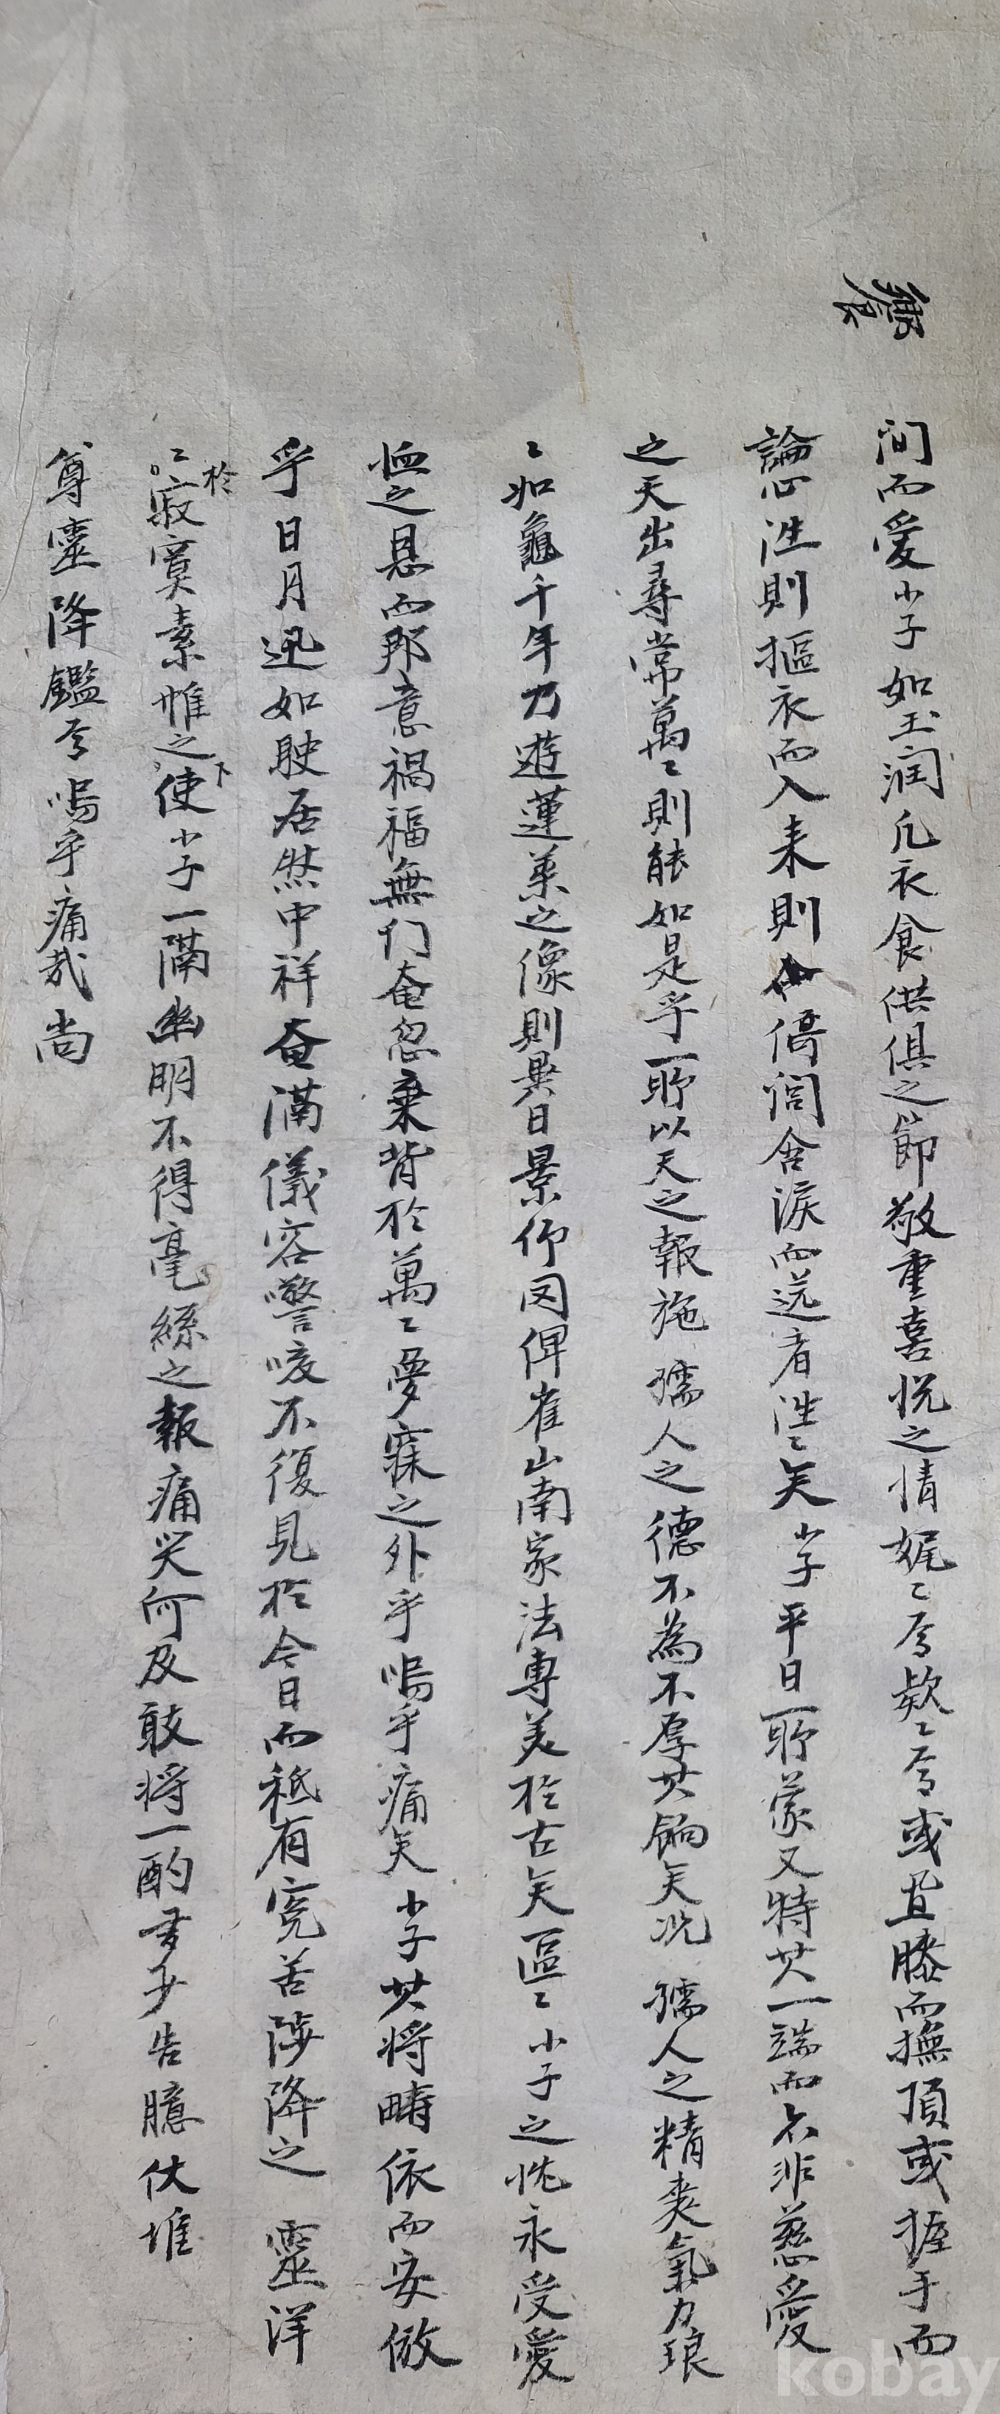 鄉
間而愛小子如玉潤凡衣食供俱之節敬重喜悅之情娓〻焉欵〻焉或置膝而撫頂或握手而
論心往則摳衣而入來則倚閭含淚而送者往〻矣小子平日所蒙又特其一端而亦非慈愛
之天出尋常萬〻則能如是乎所以天之報施孺人之德不為不厚其餉矣况孺人之精爽氣力琅
〻如龜千年乃遊蓮葉之像則異日景仰罔俾崔山南家法專美於古矣區〻小子之忱永受愛
恤之恩而那意禍福無门奄忽棄背於萬〻夢寐之外乎嗚乎痛矣小子其將疇依而安倣
乎日月迅如駛居然中祥奄滿儀容警咳不復見於今日而秖有窀苦陟降之靈洋
〻於寂寞素帷之下使小子一隔幽明不得毫絲之報痛哭何及敢将一酌文少告臆伏惟
尊靈降鑑焉嗚乎痛哉尚
kobay